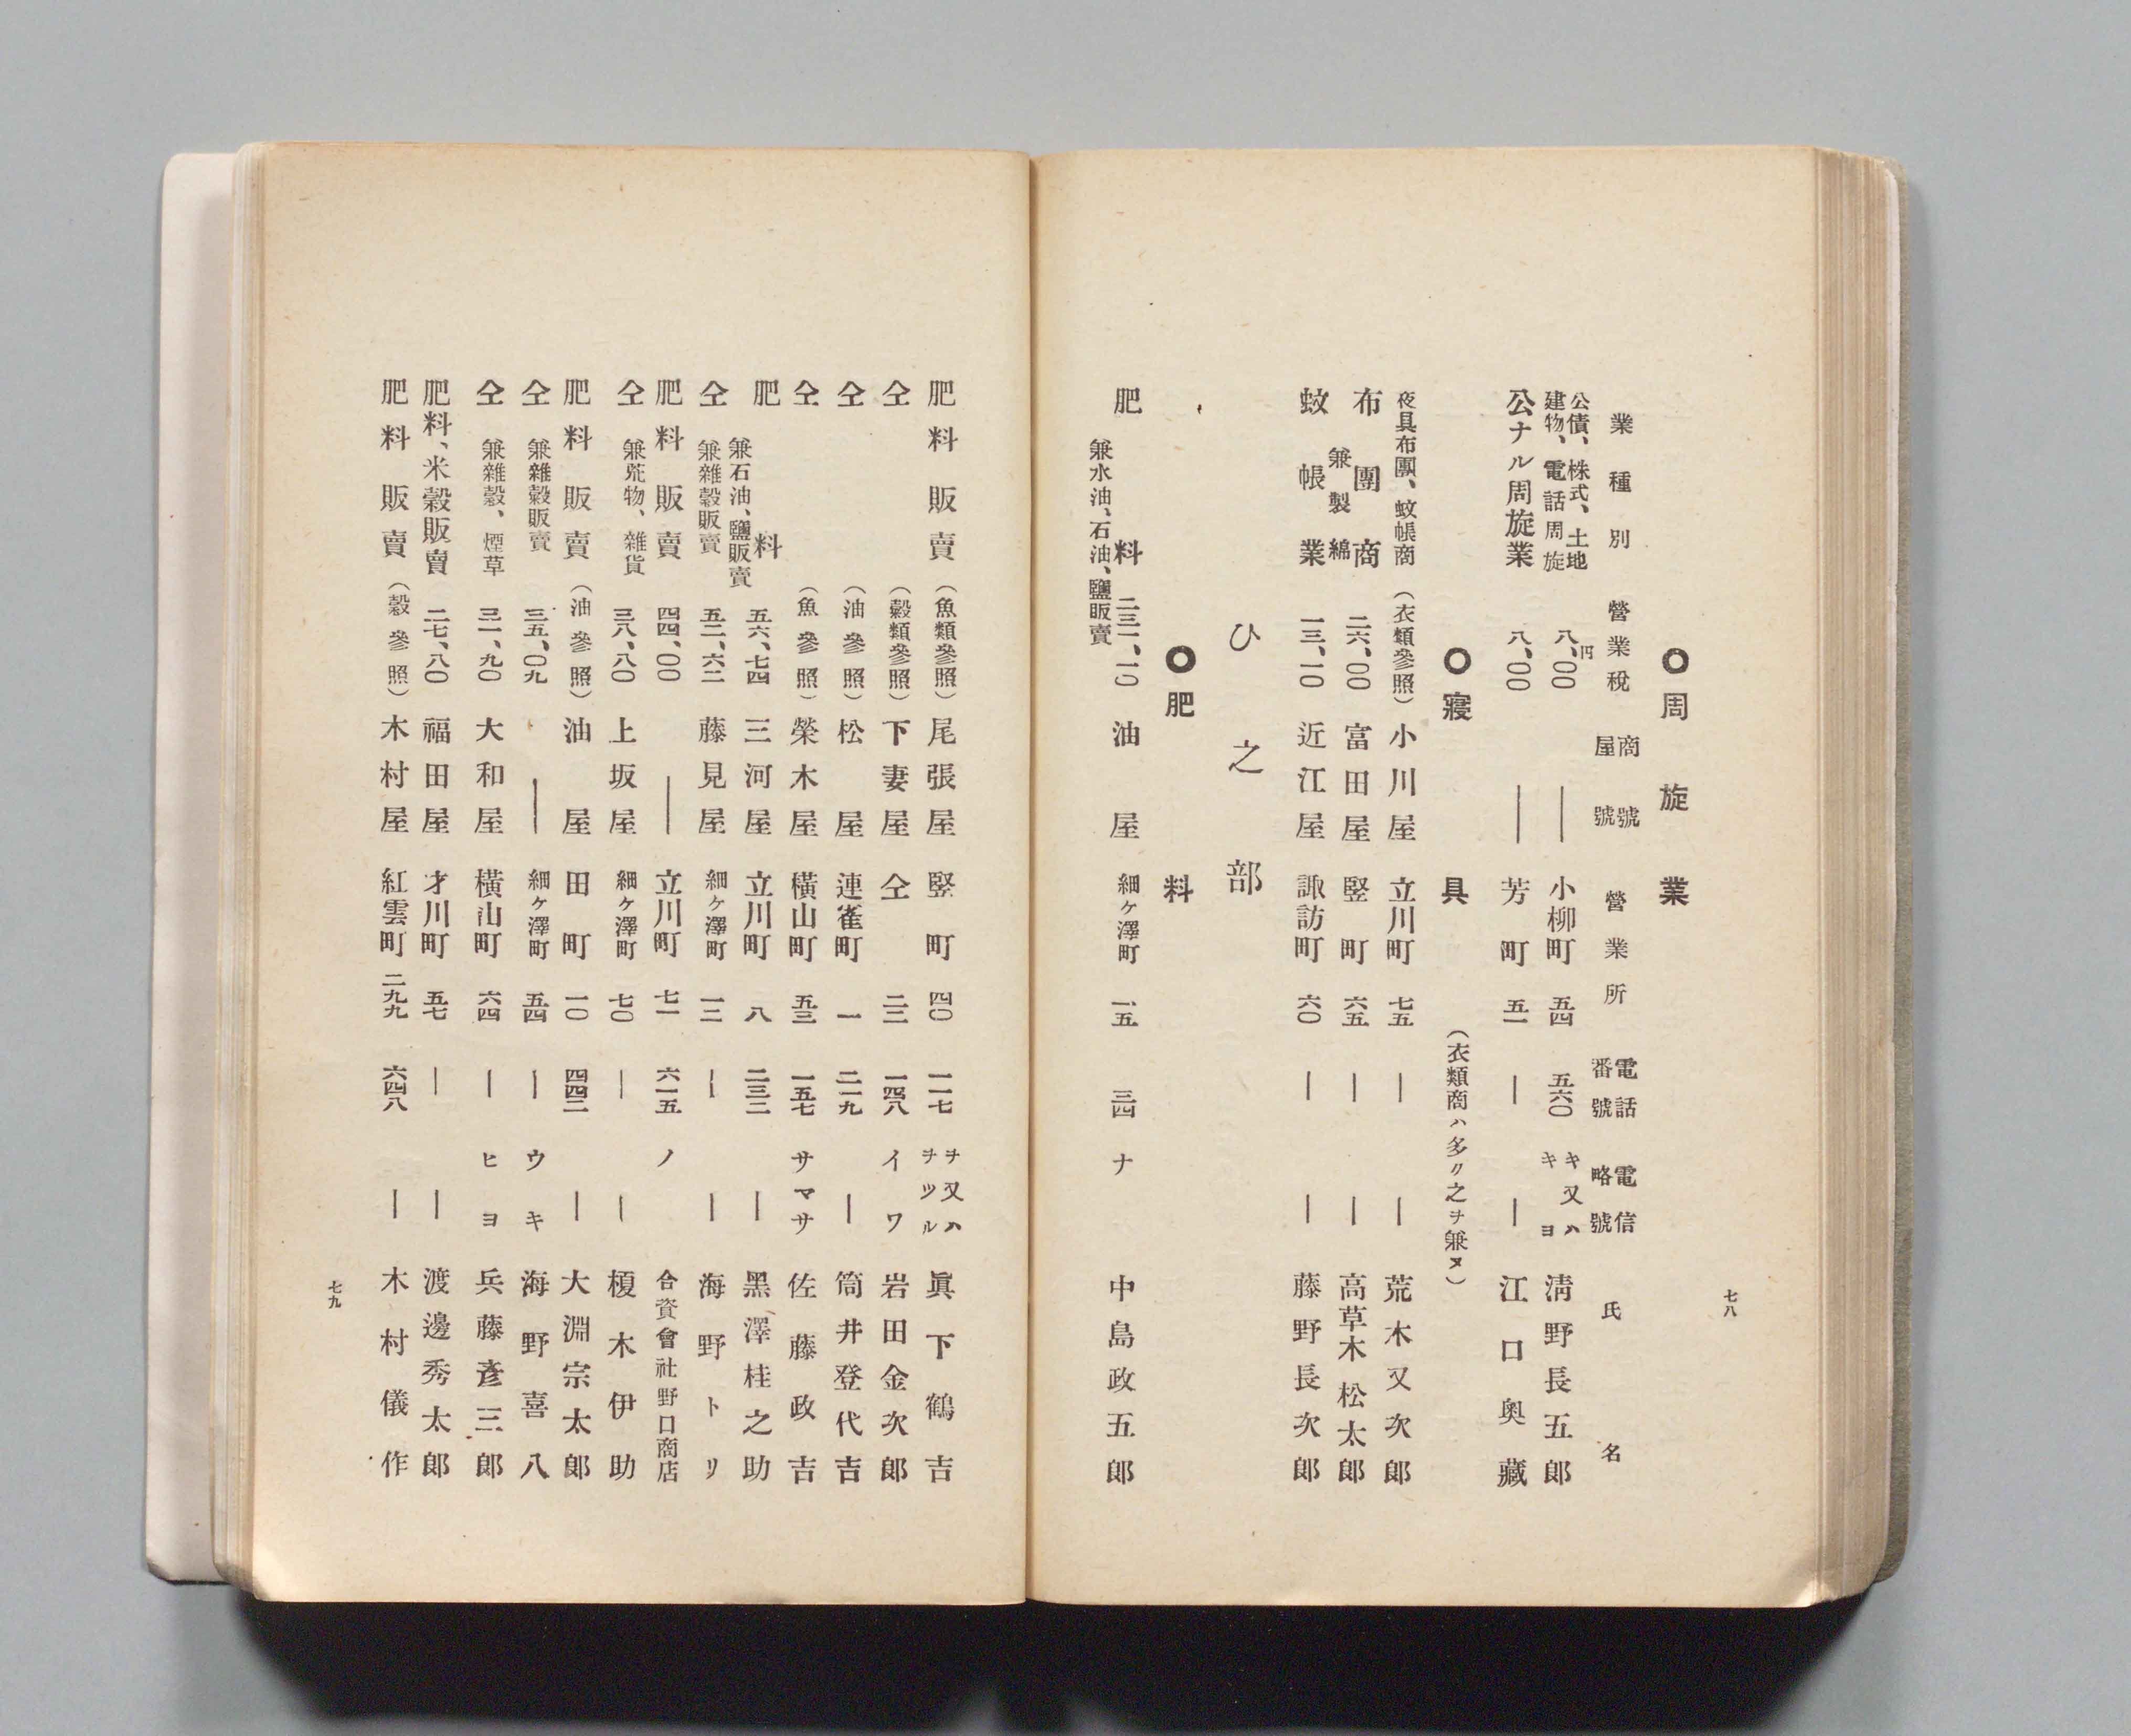 七八
◯周旋業
業種別 營業稅 商號屋號 營業所 電話番號 電信略號 氏名
公債、株式、土地建物、電話周旋 八、〇〇円 ― 小柳町 五四 五六〇 キ又ハキヨ 淸野長五郎
公ナル周旋業 八、〇〇 ― 芳町 五一 ― ― 江口奧藏
◯寢具 (衣類商ハ多ク之ヲ兼ヌ)
夜具布團、蚊帳商 (衣類參照) 小川屋 立川町 七五 ― ― 荒木又次郎
布團商 兼製綿 二六、〇〇 富田屋 竪町 六五 ― ― 高草木松太郎
蚊帳業 一三、一〇 近江屋 諏訪町 六〇 ― ― 藤野長次郎
ひ之部
◯肥料
肥料 兼水油、石油、鹽販賣 二三一、一〇 油屋 細ヶ澤町 一五 三四 ナ 中島政五郎
肥料販賣 (魚類參照) 尾張屋 竪町 四〇 一一七 ヲ又ハヲツル 眞下鶴吉
仝 (穀類參照) 下妻屋 仝 二二 一四八 イワ 岩田金次郎
仝 (油參照) 松屋 連雀町 一 二一九 ― 筒井登代吉
仝 (魚參照) 榮木屋 橫山町 五三 一五七 サマサ 佐藤政吉
肥料 兼石油、鹽販賣 五六、七四 三河屋 立川町 八 二三二 ― 黑澤桂之助
仝 兼雜穀販賣 五二、六二 藤見屋 細ヶ澤町 一二 ― ― 海野トリ
肥料販賣 四四、〇〇 ― 立川町 七一 六一五 ノ 合資會社野口商店
仝 兼荒物、雜貨 三八、八〇 上坂屋 細ヶ澤町 七〇 ― ― 榎木伊助
肥料販賣 (油參照) 油屋 田町 一〇 四四二 ― 大淵宗太郎
仝 兼雜穀販賣 三五、〇九 ― 細ヶ澤町 五四 ― ウキ 海野喜八
仝 兼雜穀、煙草 三一、九〇 大和屋 橫山町 六四 ― ヒヨ 兵藤彥三郎
肥料、米穀販賣 二七、八〇 福田屋 才川町 五七 ― ― 渡邊秀太郎
肥料販賣 (穀參照) 木村屋 紅雲町 二九九 六四八 ― 木村儀作
七九